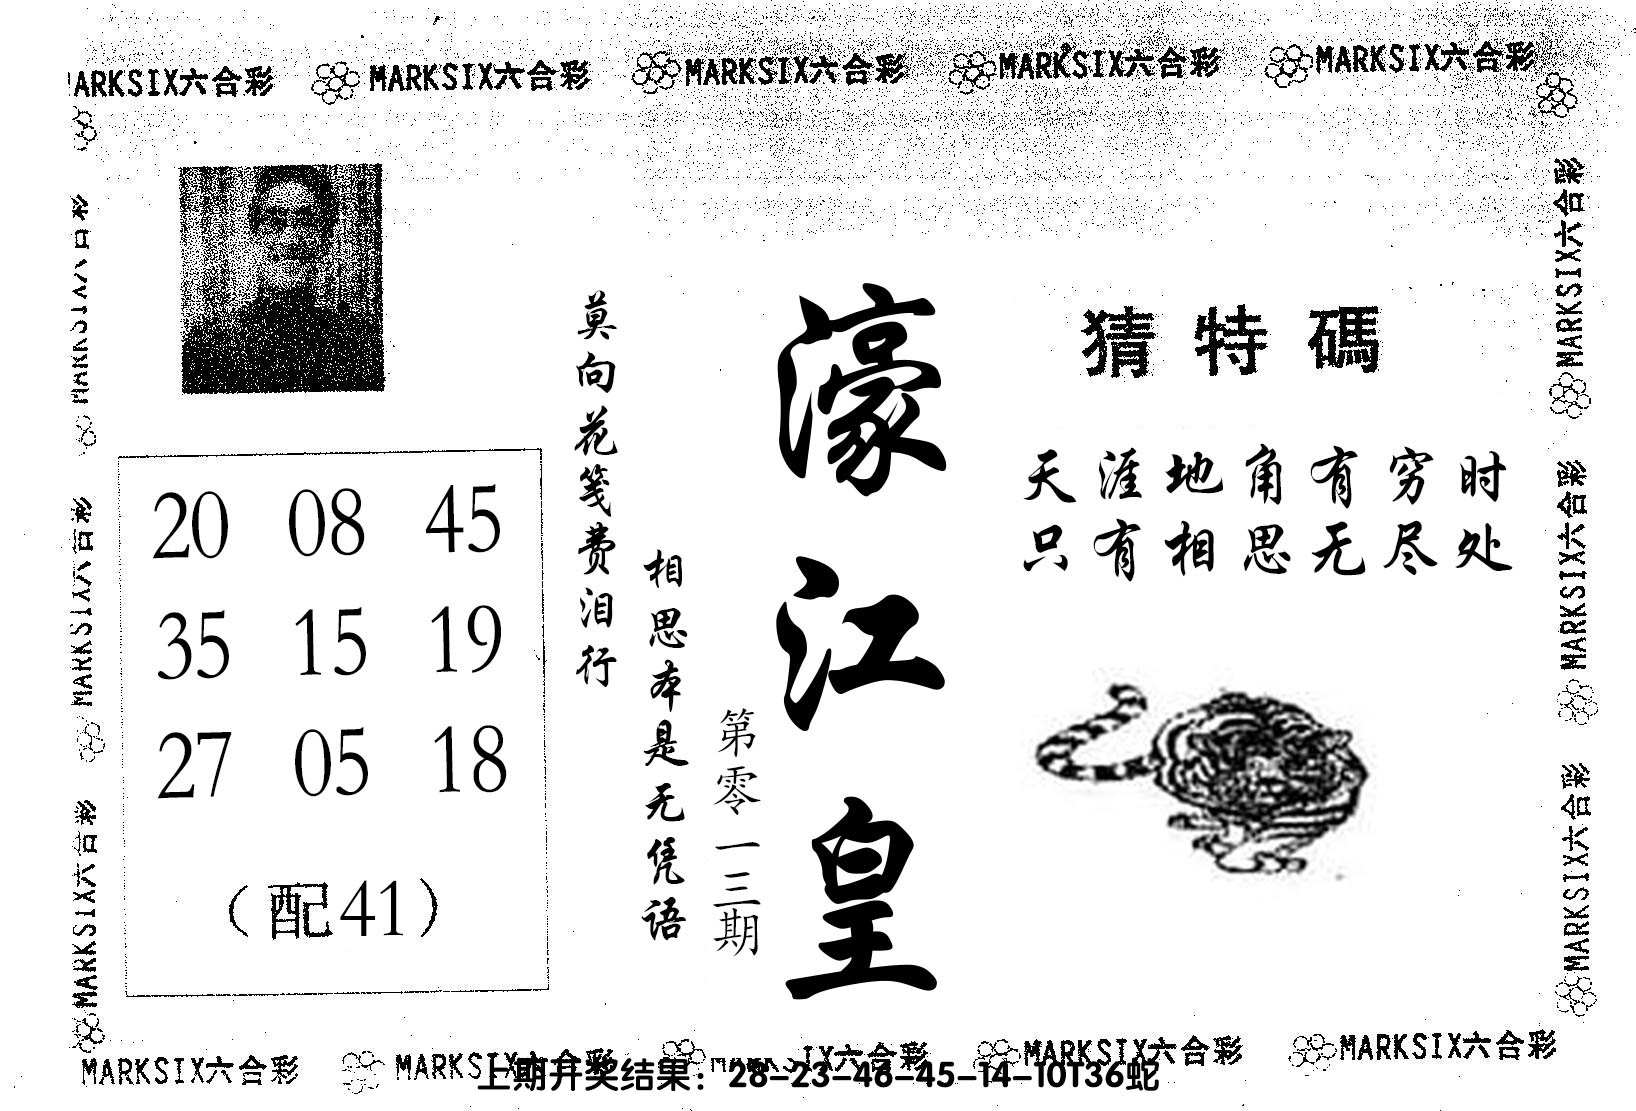 MARKSIX六合彩 MARKSIX六合彩 MARKSIX六合彩 MARKSIX六合彩 MARKSIX六合彩
猜特碼
天涯地角有穷时
只有相思无尽处
濠江皇
第零一三期
莫向花笺费泪行
相思本是无凭语
20 08 45
35 15 19
27 05 18
(配41)
MARKSIX六合彩
MARKSIX六合彩
MARKSIX六合彩
MARKSIX六合彩
MARKSIX六合彩
MARKSIX六合彩
MARKSIX六合彩 MARKSIX六合彩 MARKSIX六合彩 MARKSIX六合彩 MARKSIX六合彩
上期开奖结果：28-23-46-45-14-10T36蛇